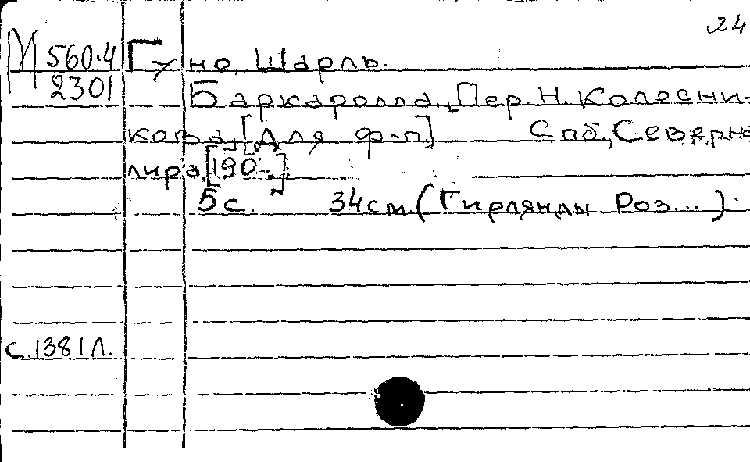 24
М 560.4 Гуно, Шарль.
2301
Баркаролла. Пер. Н. Колесни-
кова, [Для ф-п] Спб, Северна
лира, [190-.]
5 с. 34 см (Гирлянды Роз...).
с. 1381 Л.